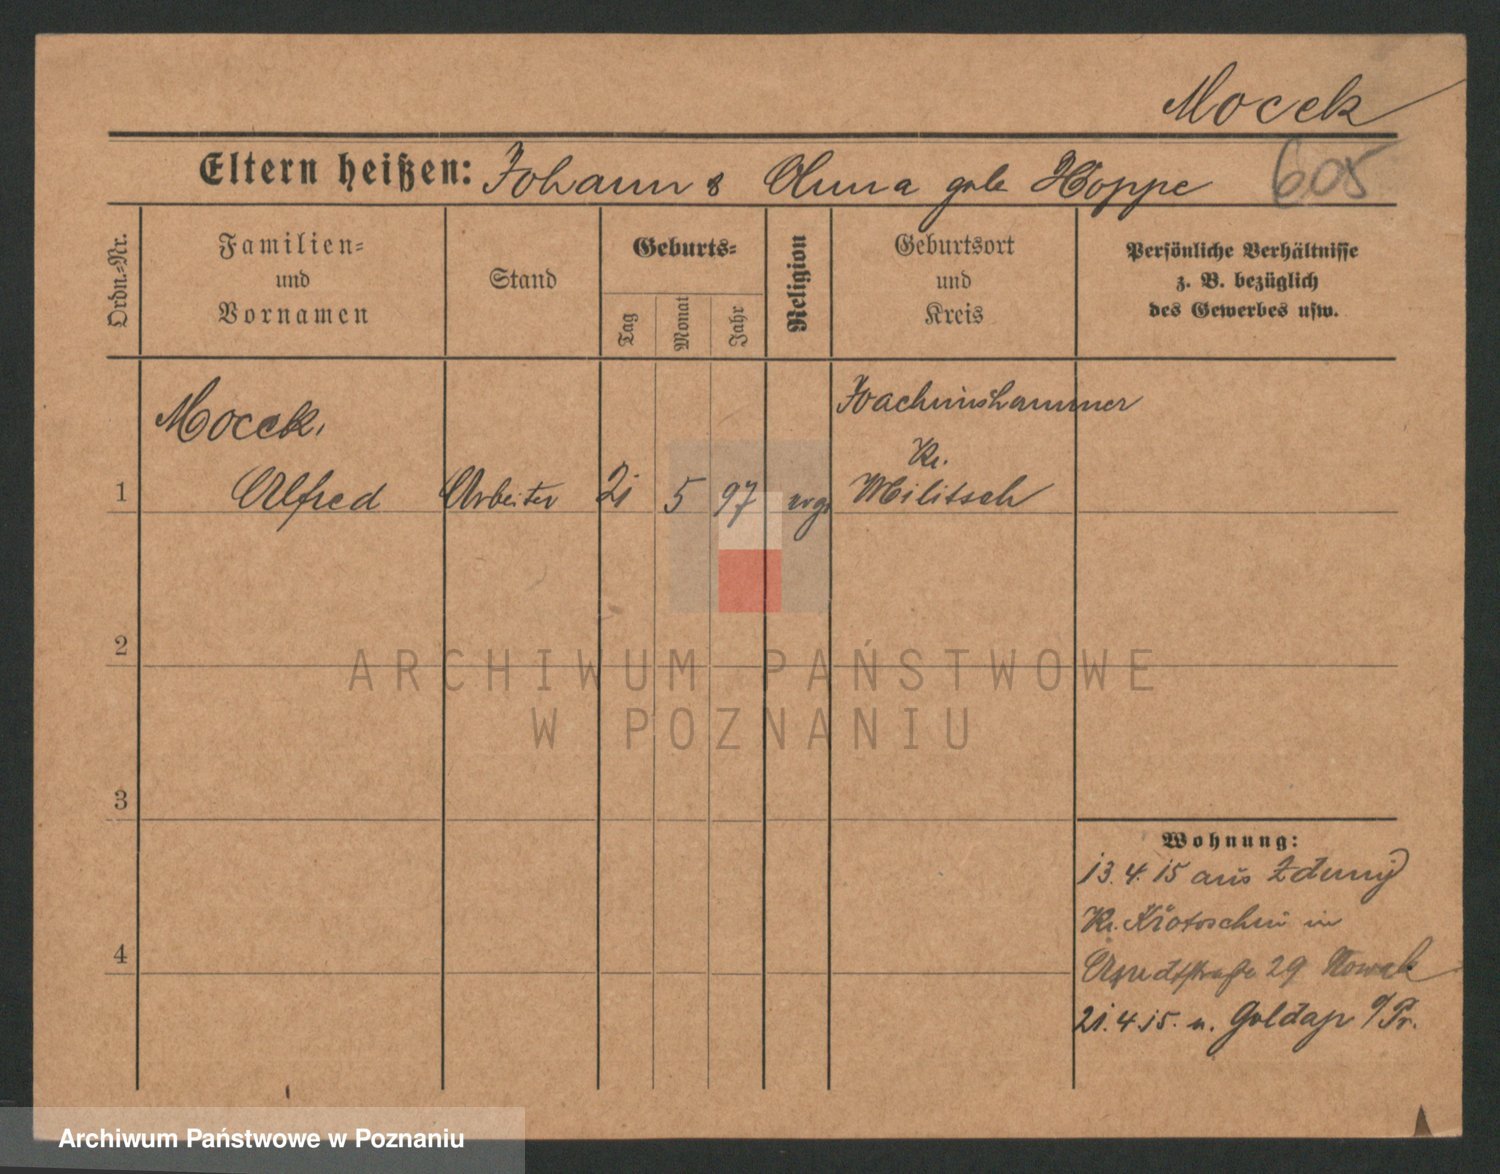 Mocek
Eltern heißen: Johann & Anna geb. Hoppe
605
Ordn.=Nr.
Familien=
und
Vornamen
Stand
Geburts=
Tag
Monat
Jahr
Religion
Geburtsort
und
Kreis
Persönliche Verhältnisse
z. B. bezüglich
des Gewerbes usw.
1
Mocek,
Alfred
Arbeiter
21
5
97
evgl
Joachimshammer
Kr.
Militsch
2
3
4
Wohnung:
13.4.15 aus Zduny
Kr. Krotoschin in
29 Nowak
21.4.15. n. Goldap O/Pr.
ARCHIWUM PAŃSTWOWE
W POZNANIU
Archiwum Państwowe w Poznaniu